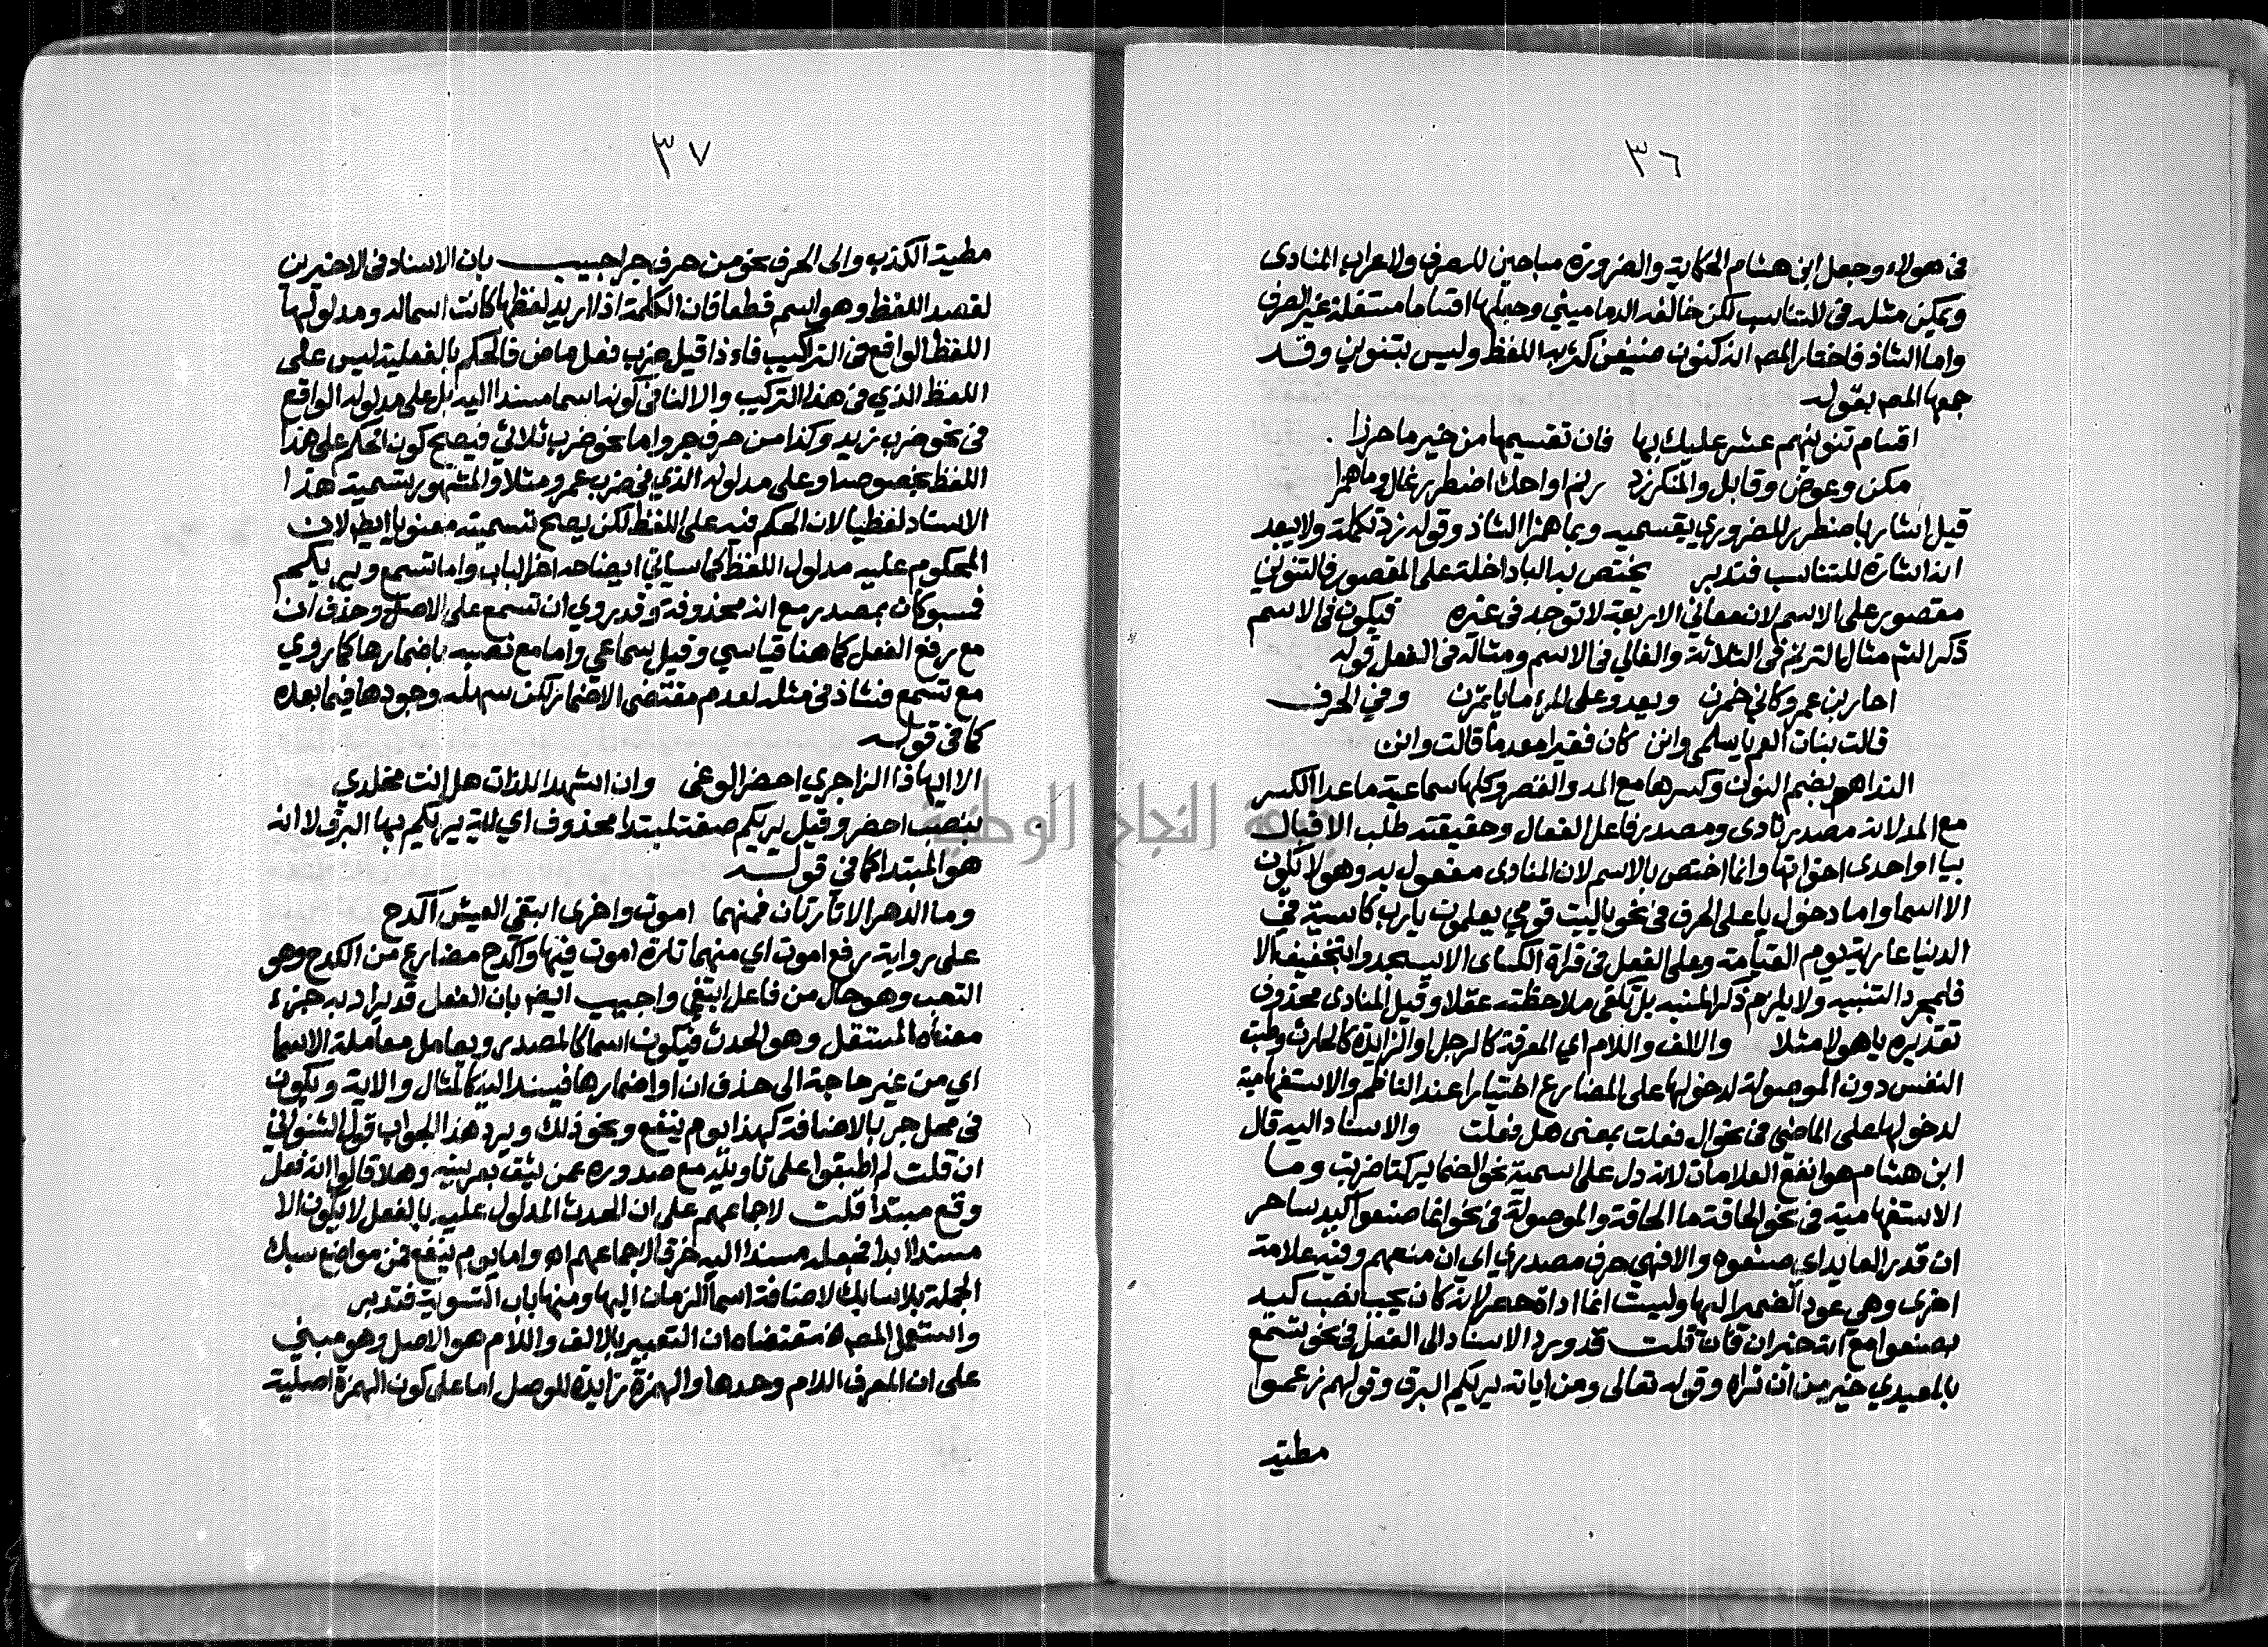 ٣٦
فى هولاء وجعل ابن هشام الحكاية والضرورة مباحين للصرف ولاعراب المنادى
ويمكن مثله فى للتناسب لكن خالفه الدماميني وجعلها اقساما مستقلة غير الصرف
واما الشاذ فاختار المصـ انه كنون ضيفن كثر به اللفظ وليس بتنوين وقد
جمعها المصـ بقوله
اقسام تنوينهم عشر عليك بها فان تقسيمها من خير ما حرزا
مكن وعوض وقابل والمنكر زد رنم او احك اضطرر غال وما همزا
قيل اشار باضطرر للضروري بقسميه وبما همزا الشاذ وقوله زد تكملة ولا يبعد
انه اشارة للتناسب فتدبر يختص به الباداخلة على المقصور فالتنوين
مقصور على الاسم لان معاني الاربعة لا توجد فى غيره فيكون فى الاسم
ذكر الشـ مثال الترنم فى الثلاثة والغالي فى الاسم ومثاله فى الفعل قوله
احار بن عمرو كاني خمرن ويعدو على المرء ما ياتمرن وفي الحرف
قالت بنات العم يا سلمى وانن كان فقيرا معدما قالت وانن
الندا هو بضم النون وكسرها مع المد والقصر وكلها سماعية ما عدا الكسر
مع المد لانه مصدر نادى ومصدر فاعل الفعال وحقيقته طلب الاقبال
بيا او احدى اخواتها وانما اختص بالاسم لان المنادى مفعول به وهو لا يكون
الا اسما واما دخول يا على الحرف فى نحو ياليت قومي يعلمون يارب كاسية في
الدنيا عارية يوم القيامة وعلى الفعل فى قراة الكساى الا يسجدوا بتخفيف الا
فلمجرد التنبيه ولا يلزم ذكر المنبه بل يكفى ملاحظته عقلا وقيل المنادى محذوف
تقديره يا هولا مثلا والالف واللام اي المعرفة كالرجل او الزايدة كالحارث وطبت
النفس دون الموصولة لدخولها على المضارع اختيارا عند الناظم والاستفهامية
لدخولها على الماضي فى نحو ال فعلت بمعنى هل فعلت والاسناد اليه قال
ابن هشام هو انفع العلامات لانه دل على اسمية نحو الضماير كتا ضربت وما
الاستفهامية فى نحو الحاقة ما الحاقة والموصولة فى نحو انما صنعوا كيد ساحر
ان قدر العايد اي صنعوه والا فهي حرف مصدري اي ان صنعهم وفيه علامة
اخرى وهي عود الضمير اليها وليست انما اداة حصر لانه كان يجب نصب كيد
بصنعوا مع انه خبر ان فان قلت قد ورد الاسناد الى الفعل فى نحو تسمع
بالمعيدي خير من ان تراه وقوله تعالى ومن اياته يريكم البرق وقولهم زعموا
مطية
٣٧
مطية الكذب والى الحرف نحو من حرف جر اجيب بان الاسناد فى الاخيرين
لقصد اللفظ وهو اسم قطعا فان الكلمة اذا اريد لفظها كانت اسما له ومدلولها
اللفظ الواقع فى التراكيب فاء ذا قيل ضرب فعل ماض فالحكم بالفعلية ليس على
اللفظ الذي فى هذا التركيب والا لنافى كونه اسما مسندا اليه بل على مدلوله الواقع
فى نحو ضرب زيد وكذا من حرف جر واما نحو ضرب ثلاثي فيصح كون الحكم على هذا
اللفظ بخصوصه او على مدلوله الذي فى ضرب عمرو مثلا والمشهور تسمية هذا
الاسناد لفظيا لان الحكم فيه على اللفظ لكن يصح تسميته معنويا ايضا لان
المحكوم عليه مدلول اللفظ كما سياتي ايضاحه اخر الباب واما تسمع ويريكم
فمسبوكان بمصدر مع ان محذوفة وقد روي ان تسمع على الاصل وحذف ان
مع رفع الفعل كما هنا قياسي وقيل سماعي واما مع نصبه باضمارها كما روي
مع تسمع فشاذ فى مثله لعدم مقتضى الاضمار لكن سهله وجودها فيما بعده
كما فى قوله
الا ايهاذا الزاجري احضر الوغى وان اشهد اللذات هل انت مخلدي
بنصب احضر وقيل يريكم صفة لمبتدا محذوف اي اية يريكم بها البرق لا انه
هو المبتدا كما فى قوله
وما الدهر الا تارتان فمنهما اموت واخرى ابتغي العيش اكدح
على رواية رفع اموت اي منهما تارة اموت فيها واكدح مضارع من الكدح وهو
التعب وهو حال من فاعل ابتغي واجيب ايضـ بان الفعل قد يراد به جزء
معناه المستقل وهو الحدث فيكون اسما كالمصدر ويعامل معاملة الاسما
اي من غير حاجة الى حذف ان او اضمارها فيسند اليه كالمثال والاية ويكون
فى محل جر بالاضافة كهذا يوم ينفع ونحو ذلك ويرد هذا الجواب قول الشنواني
ان قلت لم اطبقوا على تاويله مع صدوره عمن يثق بعربيته وهلا قالوا انه فعل
وقع مبتدا قلت لاجماعهم على ان الحدث المدلول عليه بالفعل لا يكون الا
مسندا ابدا فجعله مسندا اليه خرق لاجماعهم اهـ واما يوم ينفع فمن مواضع سبك
الجملة بلا سابك لاضافة اسما الزمان اليها ومنها باب التسوية فتدبر
واستعمل المصـ مقتضاه ان التعبير بالالف واللام هو الاصل وهو مبني
على ان المعرف اللام وحدها والهمزة زايدة للوصل اما على كون الهمزة اصلية
جامعة النجاح الوطنية